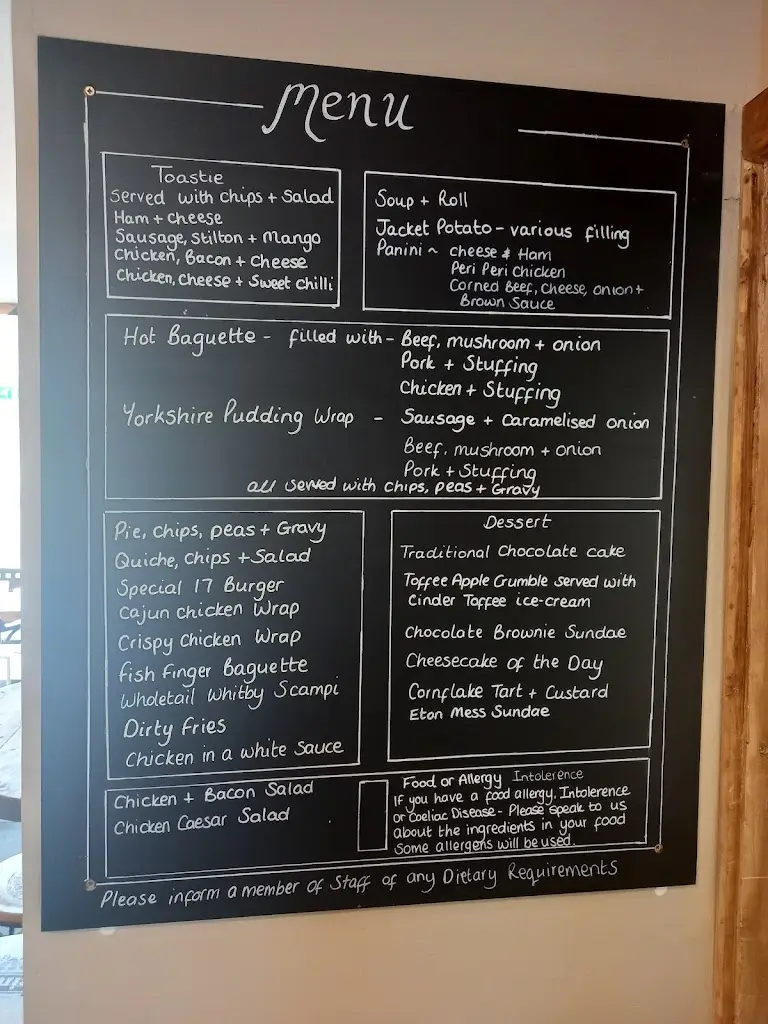 Menu
Toastie
Served with chips + Salad
Ham + cheese
Sausage, Stilton + Mango
Chicken, Bacon + Cheese
Chicken, Cheese + Sweet chilli
Soup + Roll
Jacket Potato - various filling
Panini ~ cheese & Ham
Peri Peri Chicken
Corned Beef, Cheese, onion +
Brown Sauce
Hot Baguette - filled with - Beef, mushroom + onion
Pork + Stuffing
Chicken + Stuffing
Yorkshire Pudding Wrap - Sausage + Caramelised onion
Beef, mushroom + onion
Pork + Stuffing
all served with chips, peas + Gravy
Pie, chips, peas + Gravy
Quiche, chips + Salad
Special 17 Burger
Cajun chicken Wrap
Crispy Chicken Wrap
fish finger Baguette
Wholetail Whitby Scampi
Dirty Fries
Chicken in a white Sauce
Dessert
Traditional Chocolate cake
Toffee Apple Crumble served with
Cinder Toffee ice-cream
Chocolate Brownie Sundae
Cheesecake of the Day
Cornflake Tart + Custard
Eton Mess Sundae
Chicken + Bacon Salad
Chicken Caesar Salad
Food or Allergy Intolerence
If you have a food allergy, Intolerence
or Coeliac Disease - Please speak to us
about the ingredients in your food
Some allergens will be used.
Please inform a member of Staff of any Dietary Requirements